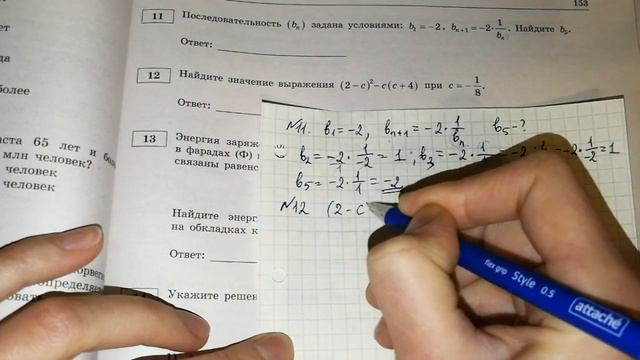 153
11 Последовательность (bₙ) задана условиями: b₁ = −2, bₙ₊₁ = −2·1/bₙ. Найдите b₅.
Ответ:
12 Найдите значение выражения (2−c)²−c(c+4) при c = −1/8.
Ответ:
13 Энергия заряж
в фарадах (Ф)
связаны равенс
Найдите энерг
на обкладках к
Ответ:
Укажите решен
ет
да
более
аста 65 лет и бол
млн человек?
человек
человек
№11. b₁=−2, bₙ₊₁=−2·1/bₙ b₅−?
=1; b₃=−2·1/ =−2 −2·1/−2=1
b₅=−2·1/1=−2
№12 (2−c
flex grip Style 0.5 attaché